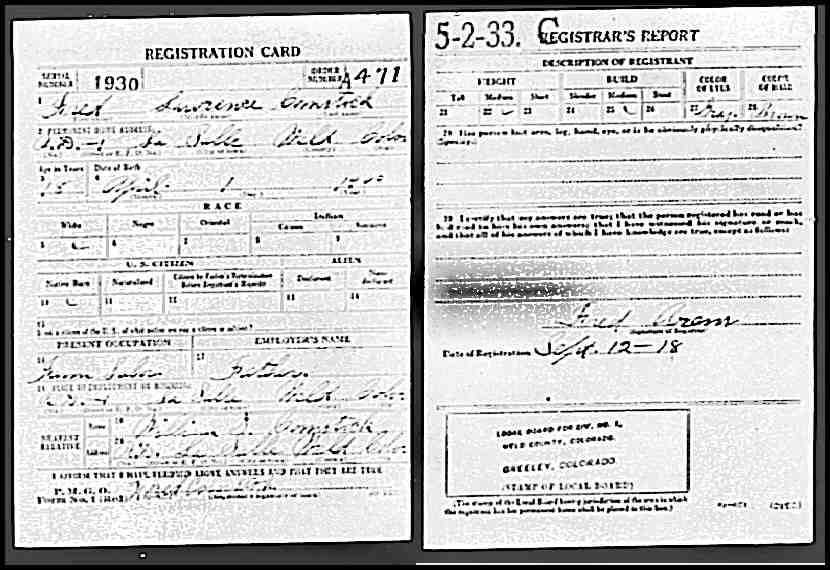 REGISTRATION CARD
SERIAL NUMBER 1930 ORDER NUMBER A471
1 Fred Lawrence Comstock
2 PERMANENT HOME ADDRESS:
R.D. 1 La Salle Weld Colo
Age in Years Date of Birth
3 18 April 1
RACE
White Negro Oriental Indian
Citizen Noncitizen
5 6 7 8 9
U. S. CITIZEN ALIEN
Native Born Naturalized Citizen by Father's Naturalization Before Registrant's Majority Declarant Non-declarant
10 11 12 13 14
15
PRESENT OCCUPATION EMPLOYER'S NAME
16 17
Farm Labor Father
18 PLACE OF EMPLOYMENT OR BUSINESS:
R.D. 1 La Salle Weld Colo
NEAREST RELATIVE
Name 19 William Comstock
Address 20 La Salle Weld Colo
I AFFIRM THAT I HAVE VERIFIED ABOVE ANSWERS AND THAT THEY ARE TRUE
P. M. G. O.
Form No. 1 (Red)
5-2-33. C REGISTRAR'S REPORT
DESCRIPTION OF REGISTRANT
HEIGHT BUILD COLOR OF EYES COLOR OF HAIR
Tall Medium Short Slender Medium Stout
21 22 23 24 25 26 27 Gray 28 Brown
29 Has person lost arm, leg, hand, eye, or is he obviously physically disqualified?
(Specify.)
30 I certify that my answers are true; that the person registered has read or has
had read to him his own answers; that I have witnessed his signature or mark,
and that all of his answers of which I have knowledge are true, except as follows:
Fred Arem
(Signature of Registrar)
Date of Registration Sept. 12-18
LOCAL BOARD FOR DIV. NO. 1,
WELD COUNTY, COLORADO.
GREELEY, COLORADO
(STAMP OF LOCAL BOARD)
(The stamp of the Local Board having jurisdiction of the area in which
the registrant has his permanent home shall be placed in this box.)